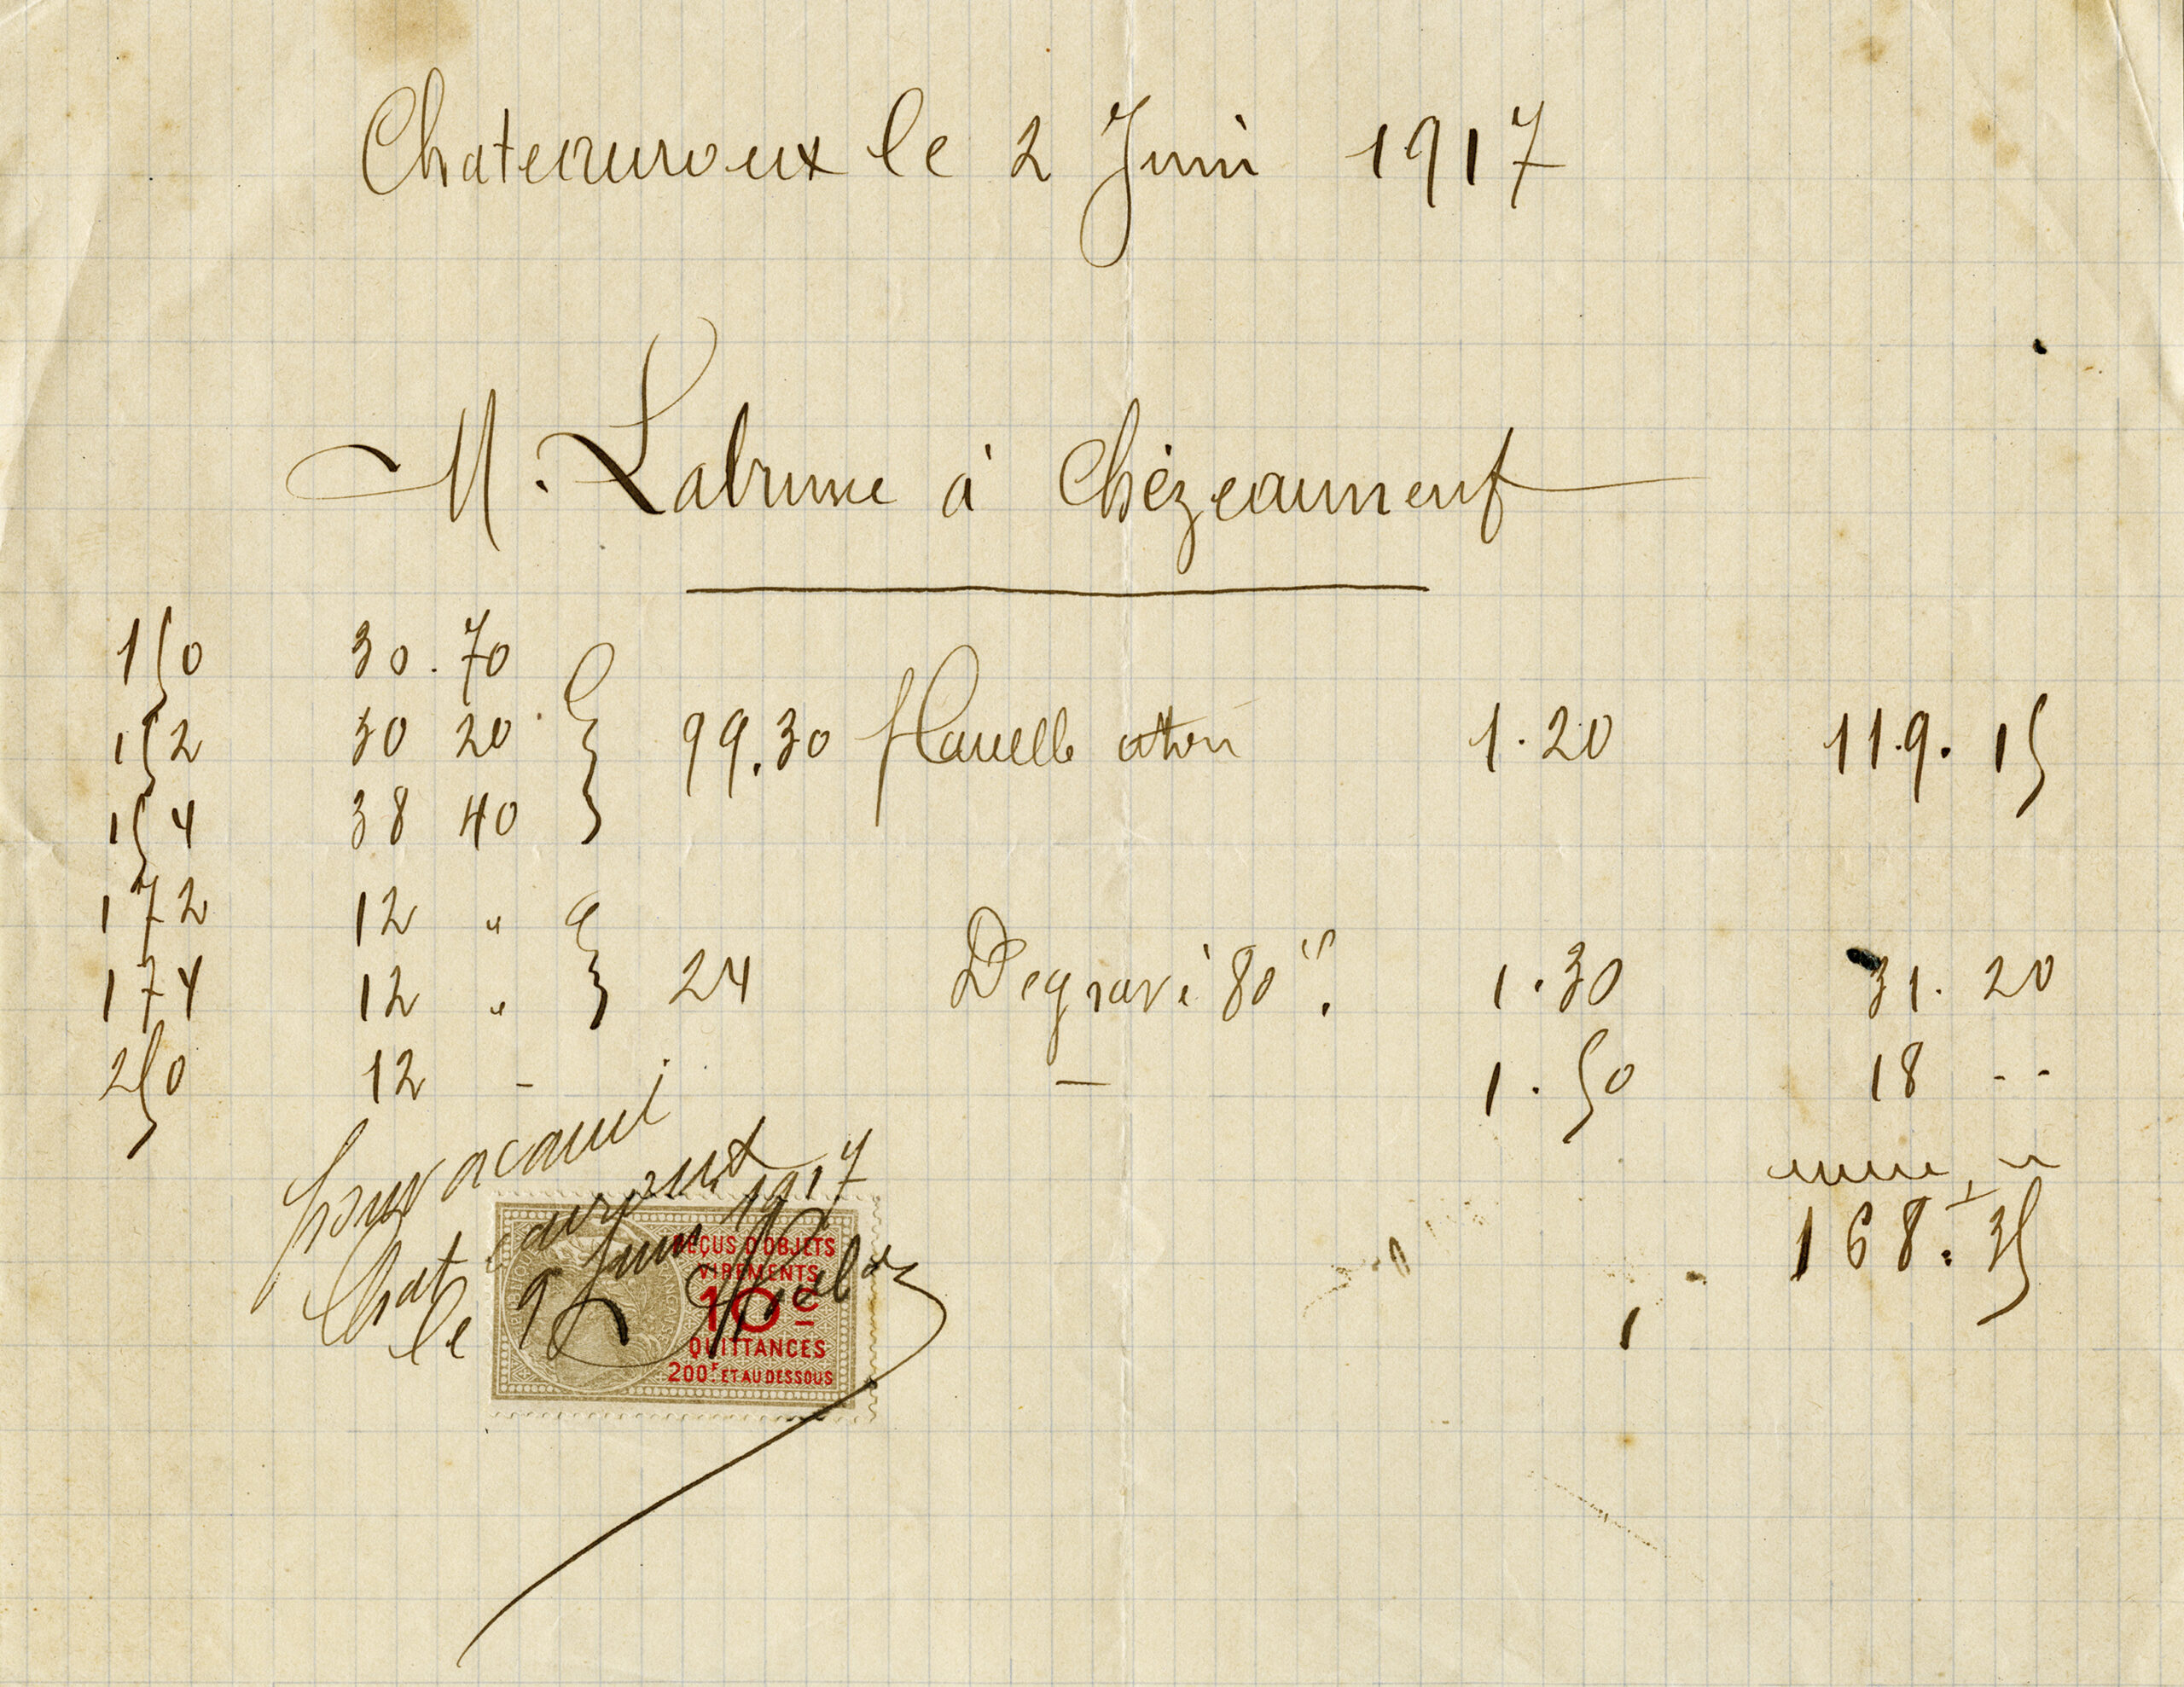 Chateauroux le 2 Juin 1917
M. Labrune à Chézeauneuf
150 30.70
152 30 20 99.30 flanelle coton 1.20 119.15
154 38 40
172 12 "
174 12 " 24 Degravé 80 1.30 31.20
250 12 - — 1.50 18 --
168.35
Pour acquit
Chateauroux
le 9 Juin 1917
REÇUS D'OBJETS
VIREMENTS
10c
QUITTANCES
200F ET AU DESSOUS